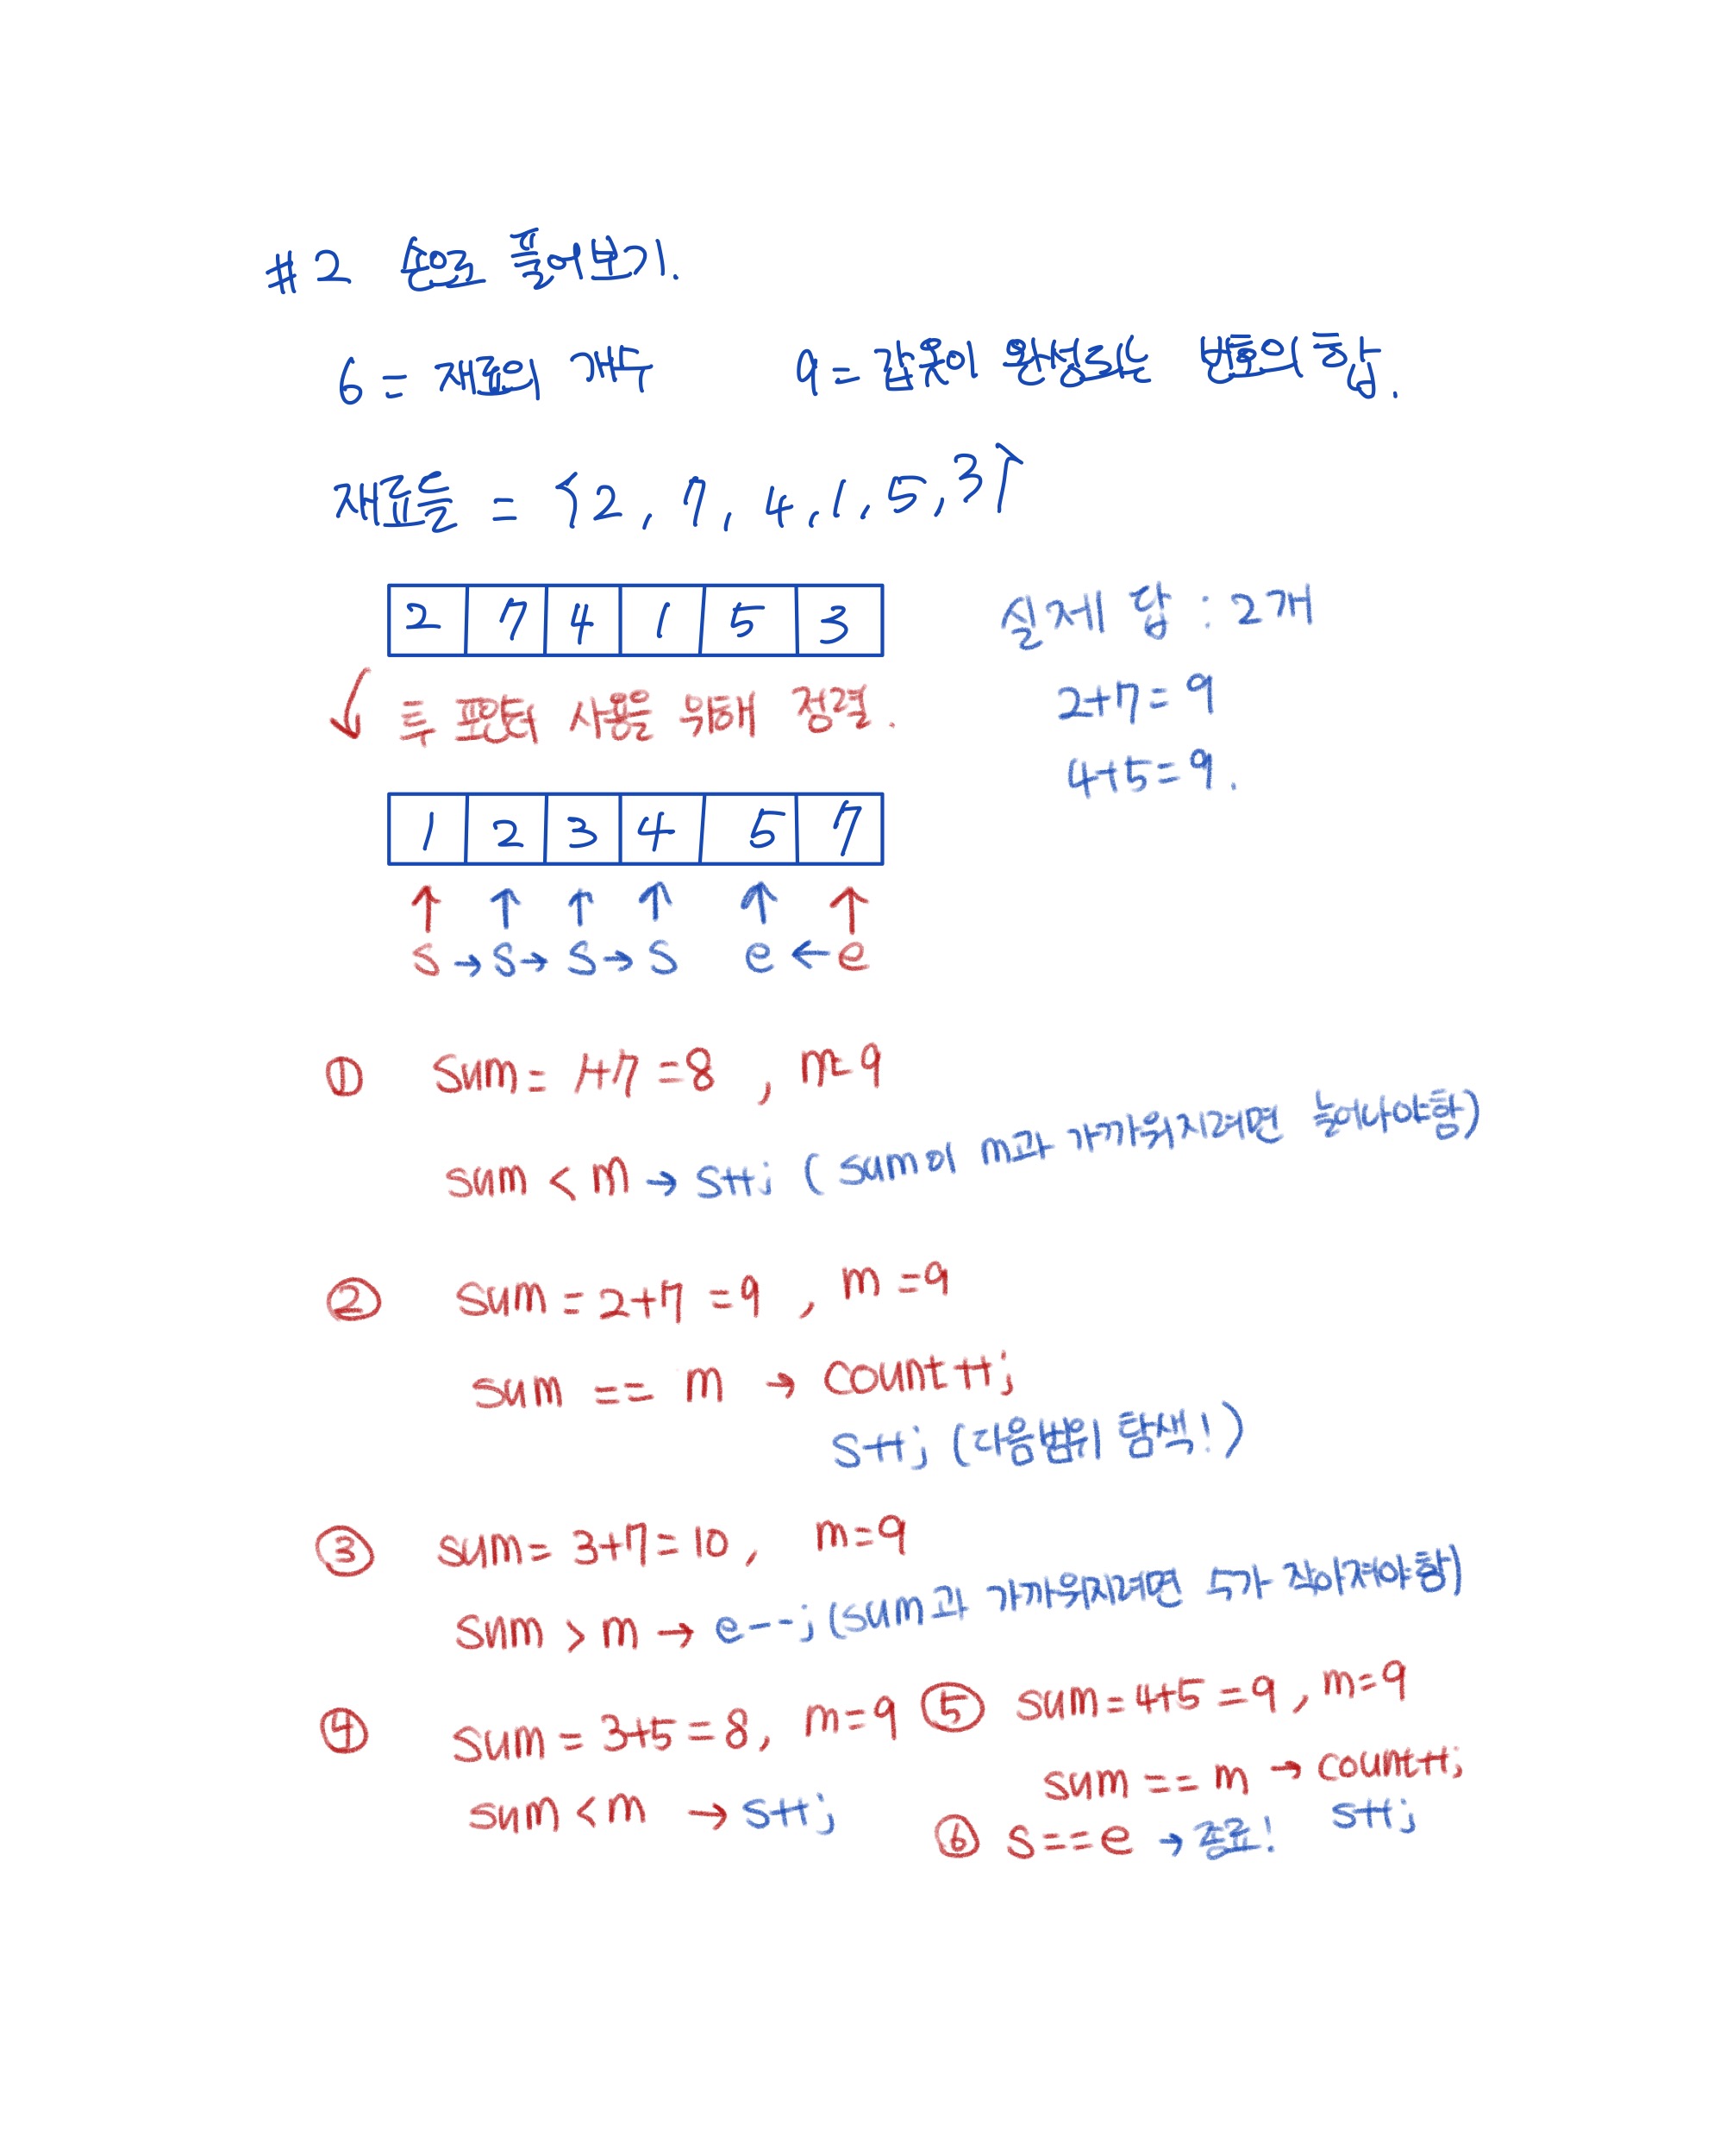 #2 손으로 풀어보기.
6 = 재료의 개수 9 = 갑옷이 완성되는 번호의 합.
재료들 = {2, 7, 4, 1, 5, 3}
2 7 4 1 5 3
실제 답 : 2개
↙ 투 포인터 사용을 위해 정렬.
2+7=9
4+5=9.
1 2 3 4 5 7
↑ ↑ ↑ ↑ ↑ ↑
s → s → s → s e ← e
① sum = 1+7 = 8 , m=9
sum < m → s++; ( sum이 m과 가까워지려면 늘어나야함)
② sum = 2+7 = 9 , m = 9
sum == m → count++;
s++; (다음범위 탐색!)
③ sum = 3+7 = 10 , m=9
sum > m → e--; (sum과 가까워지려면 수가 작아져야함)
④ sum = 3+5 = 8, m=9
sum < m → s++;
⑤ sum = 4+5 = 9 , m=9
sum == m → count++;
s++;
⑥ s==e → 종료!